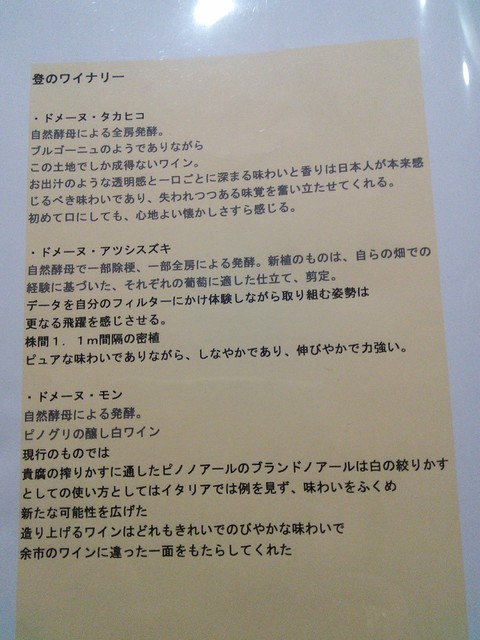 登のワイナリー
・ドメーヌ・タカヒコ
自然酵母による全房発酵。
ブルゴーニュのようでありながら
この土地でしか成得ないワイン。
お出汁のような透明感と一口ごとに深まる味わいと香りは日本人が本来感
じるべき味わいであり、失われつつある味覚を奮い立たせてくれる。
初めて口にしても、心地よい懐かしさすら感じる。
・ドメーヌ・アツシスズキ
自然酵母で一部除梗、一部全房による発酵。新植のものは、自らの畑での
経験に基づいた、それぞれの葡萄に適した仕立て、剪定。
データを自分のフィルターにかけ体験しながら取り組む姿勢は
更なる飛躍を感じさせる。
株間1.1m間隔の密植
ピュアな味わいでありながら、しなやかであり、伸びやかで力強い。
・ドメーヌ・モン
自然酵母による発酵。
ピノグリの醸し白ワイン
現行のものでは
貴腐の搾りかすに通したピノノアールのブランドノアールは白の絞りかす
としての使い方としてはイタリアでは例を見ず、味わいをふくめ
新たな可能性を広げた
造り上げるワインはどれもきれいでのびやかな味わいで
余市のワインに違った一面をもたらしてくれた